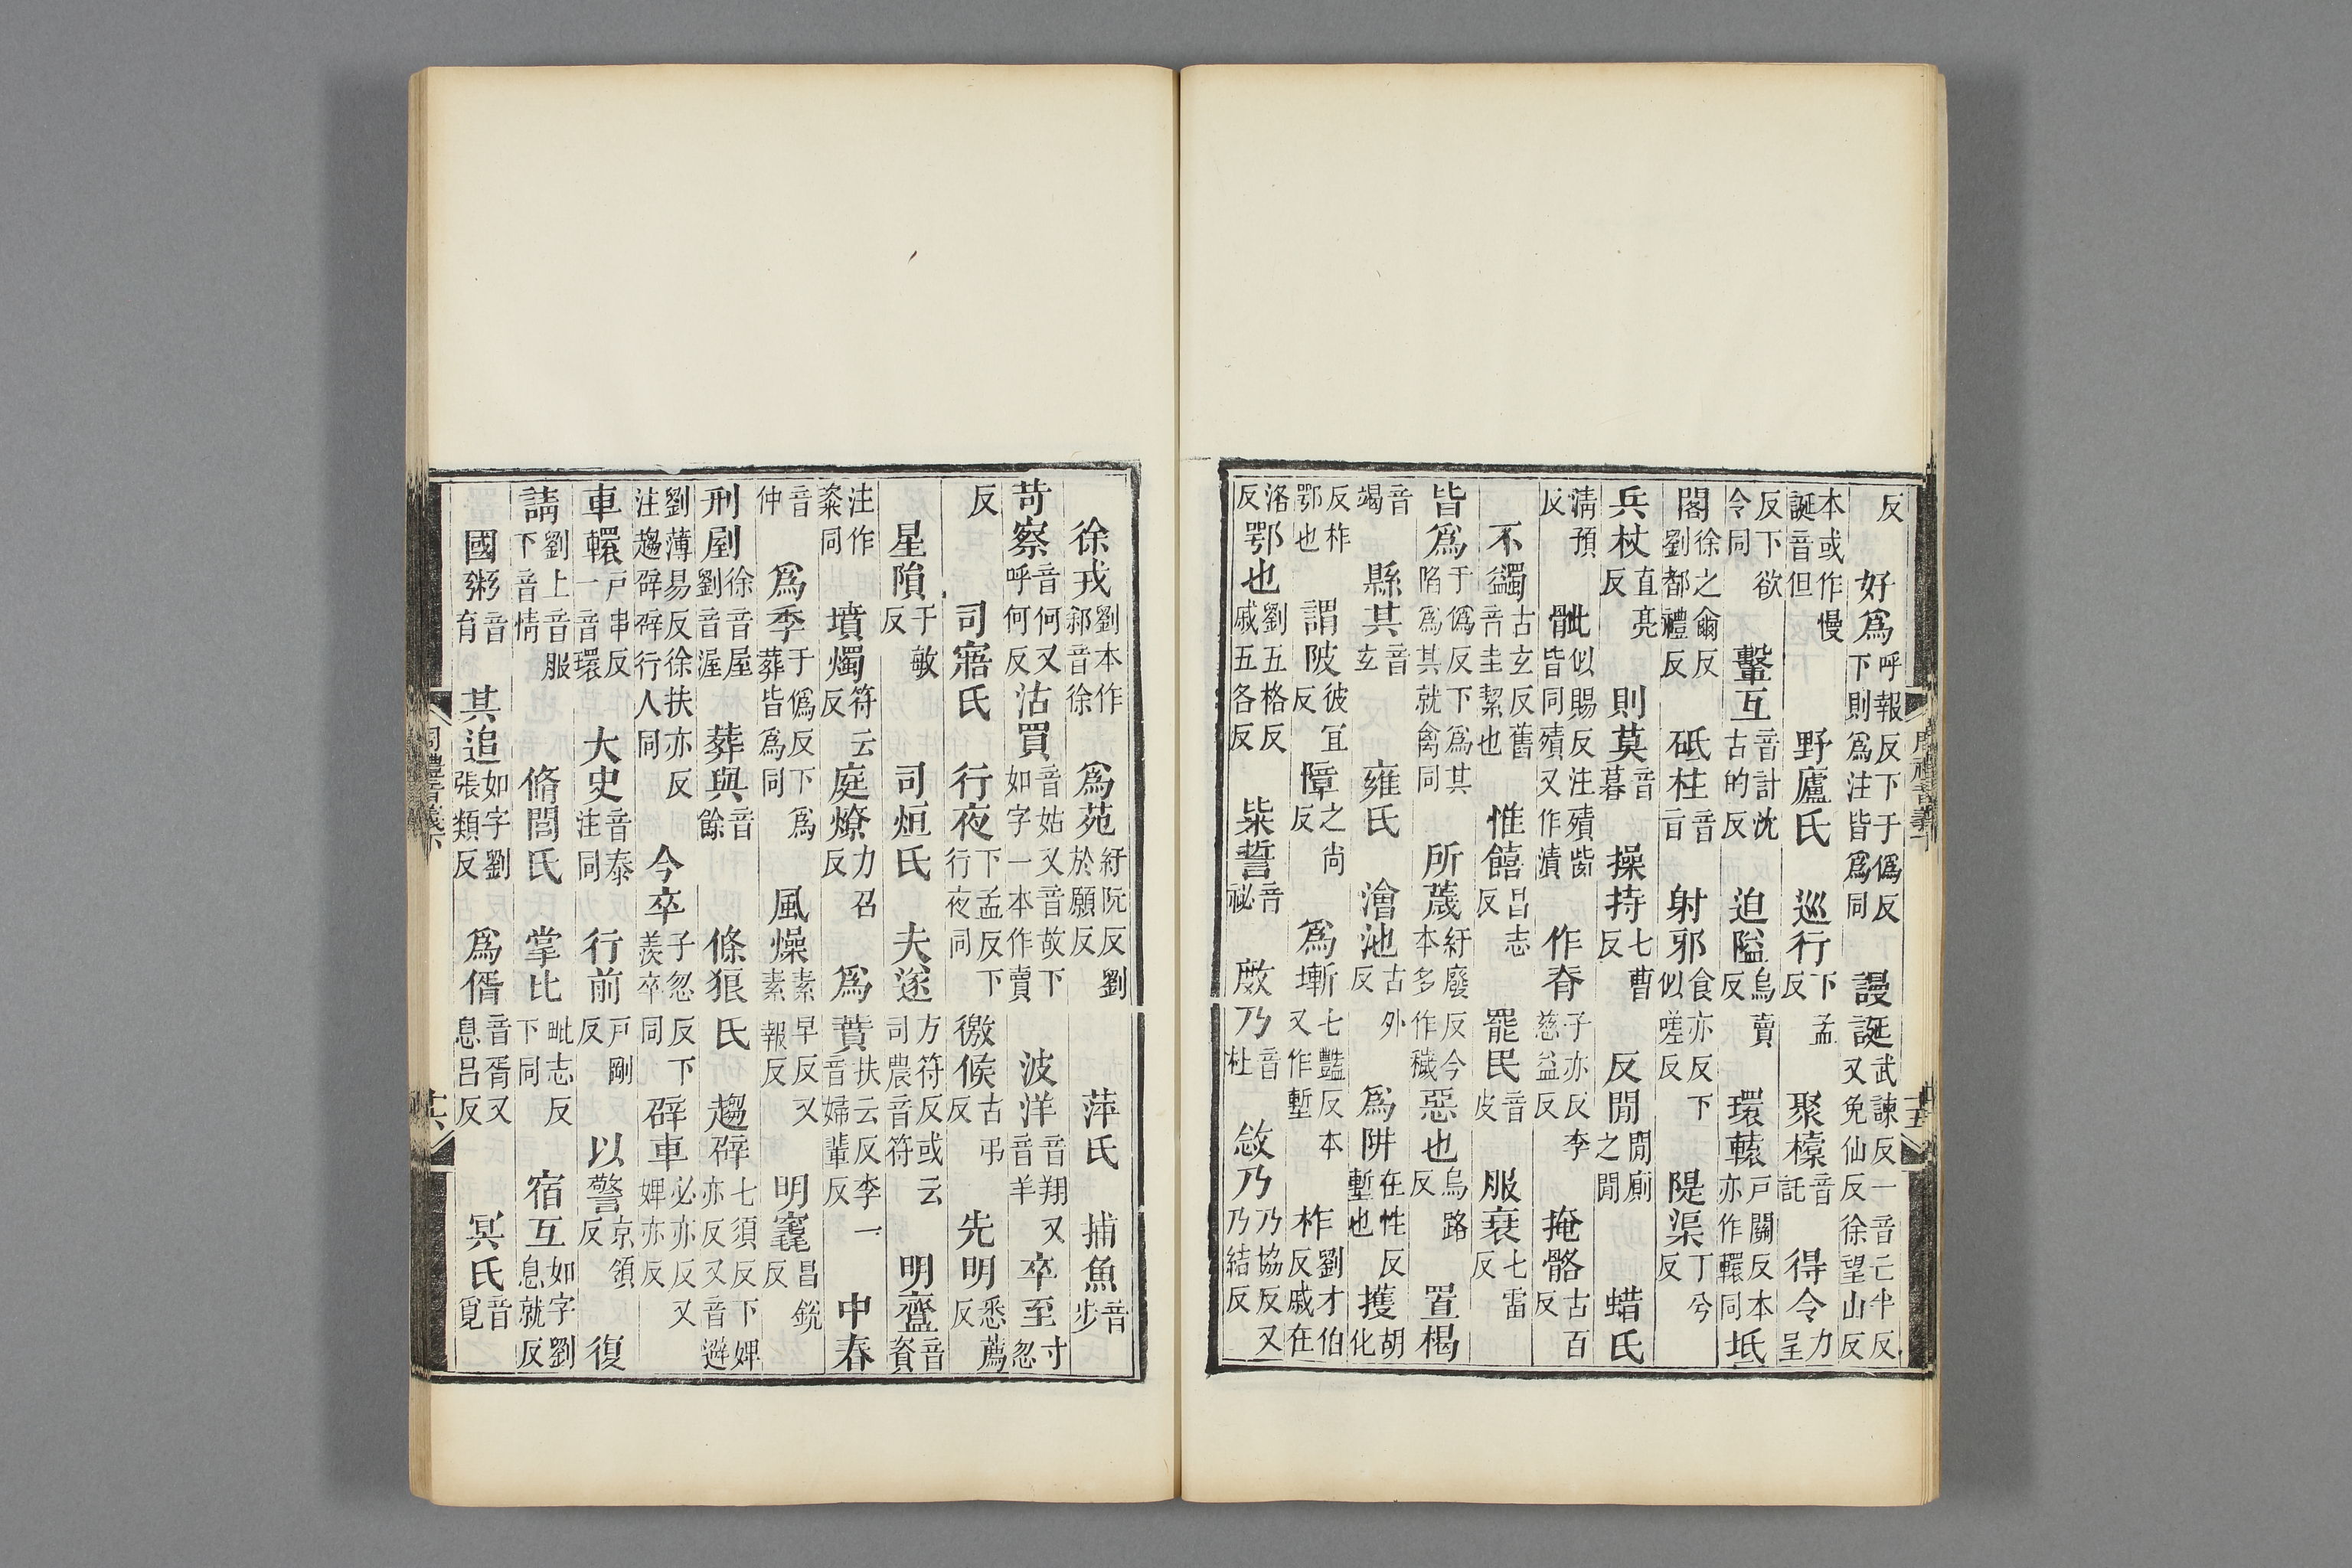 反 好爲呼報反下于僞反下則爲注皆爲同 謾誔武諫反一音亡半反又免仙反徐望山反
本或作慢誕音但 野廬氏 巡行下孟反 聚㯓音託 得令力呈
反下欲令同 轚互音計沈古的反 迫隘烏賣反 環轅戶關反本亦作轘同 坻
閣徐之爾反劉都禮反 砥柱音旨 射邪食亦反下似嗟反 隄渠丁兮反
兵杖直亮反 則莫音暮 操持七曹反 反閒閒廁之閒 蜡氏
清預反 骴似賜反注殨骴皆同殨又作漬 作脊子亦反李慈益反 掩骼古百反
不蠲古玄反舊音圭絜也 惟饎昌志反 罷民音皮 服衰七雷反
皆爲于僞反下爲其陷爲其就禽同 所薉紆廢反今本多作穢 惡也烏路反 置楬
音竭 縣其音玄 雍氏 澮池古外反 爲阱在性反塹也 擭胡化
反柞鄂也 謂陂彼宜反 障之尚反 爲壍七豔反本又作塹 柞劉才伯反戚在
洛反 鄂也劉五格反戚五各反 粊誓音祕 敷乃音杜 敜乃乃協反又乃結反
徐戎劉本作郐音徐 爲苑紆阮反劉於願反 萍氏 捕魚音步
苛察音何又呼何反 沽買音姑又音故下如字一本作賣 波洋音翔又音羊 卒至寸忽
反 司寤氏 行夜下孟反下行夜同 徼候古弔反 先明悉薦反
星隕于敏反 司烜氏 夫遂方符反或云司農音符 明齍音粢
注作粢同 墳燭符云反 庭燎力召反 爲蕡扶云反李一音婦輩反 中春
音仲 爲季于僞反下爲葬皆爲同 風燥素早反又素報反 明竁昌銳反
刑剭徐音屋劉音渥 葬與音餘 條狼氏 趨辟七須反下婢亦反又音避
劉薄易反徐扶亦反注趨辟辟行人同 今卒子忽反下羨卒同 辟車必亦反又婢亦反
車轘戶串反一音環 大史音泰注同 行前戶剛反 以警京領反 復
請劉上音服下音情 脩閭氏 掌比毗志反下同 宿互如字劉息就反
國粥音育 其追如字劉張類反 爲偦音胥又息呂反 冥氏音覓